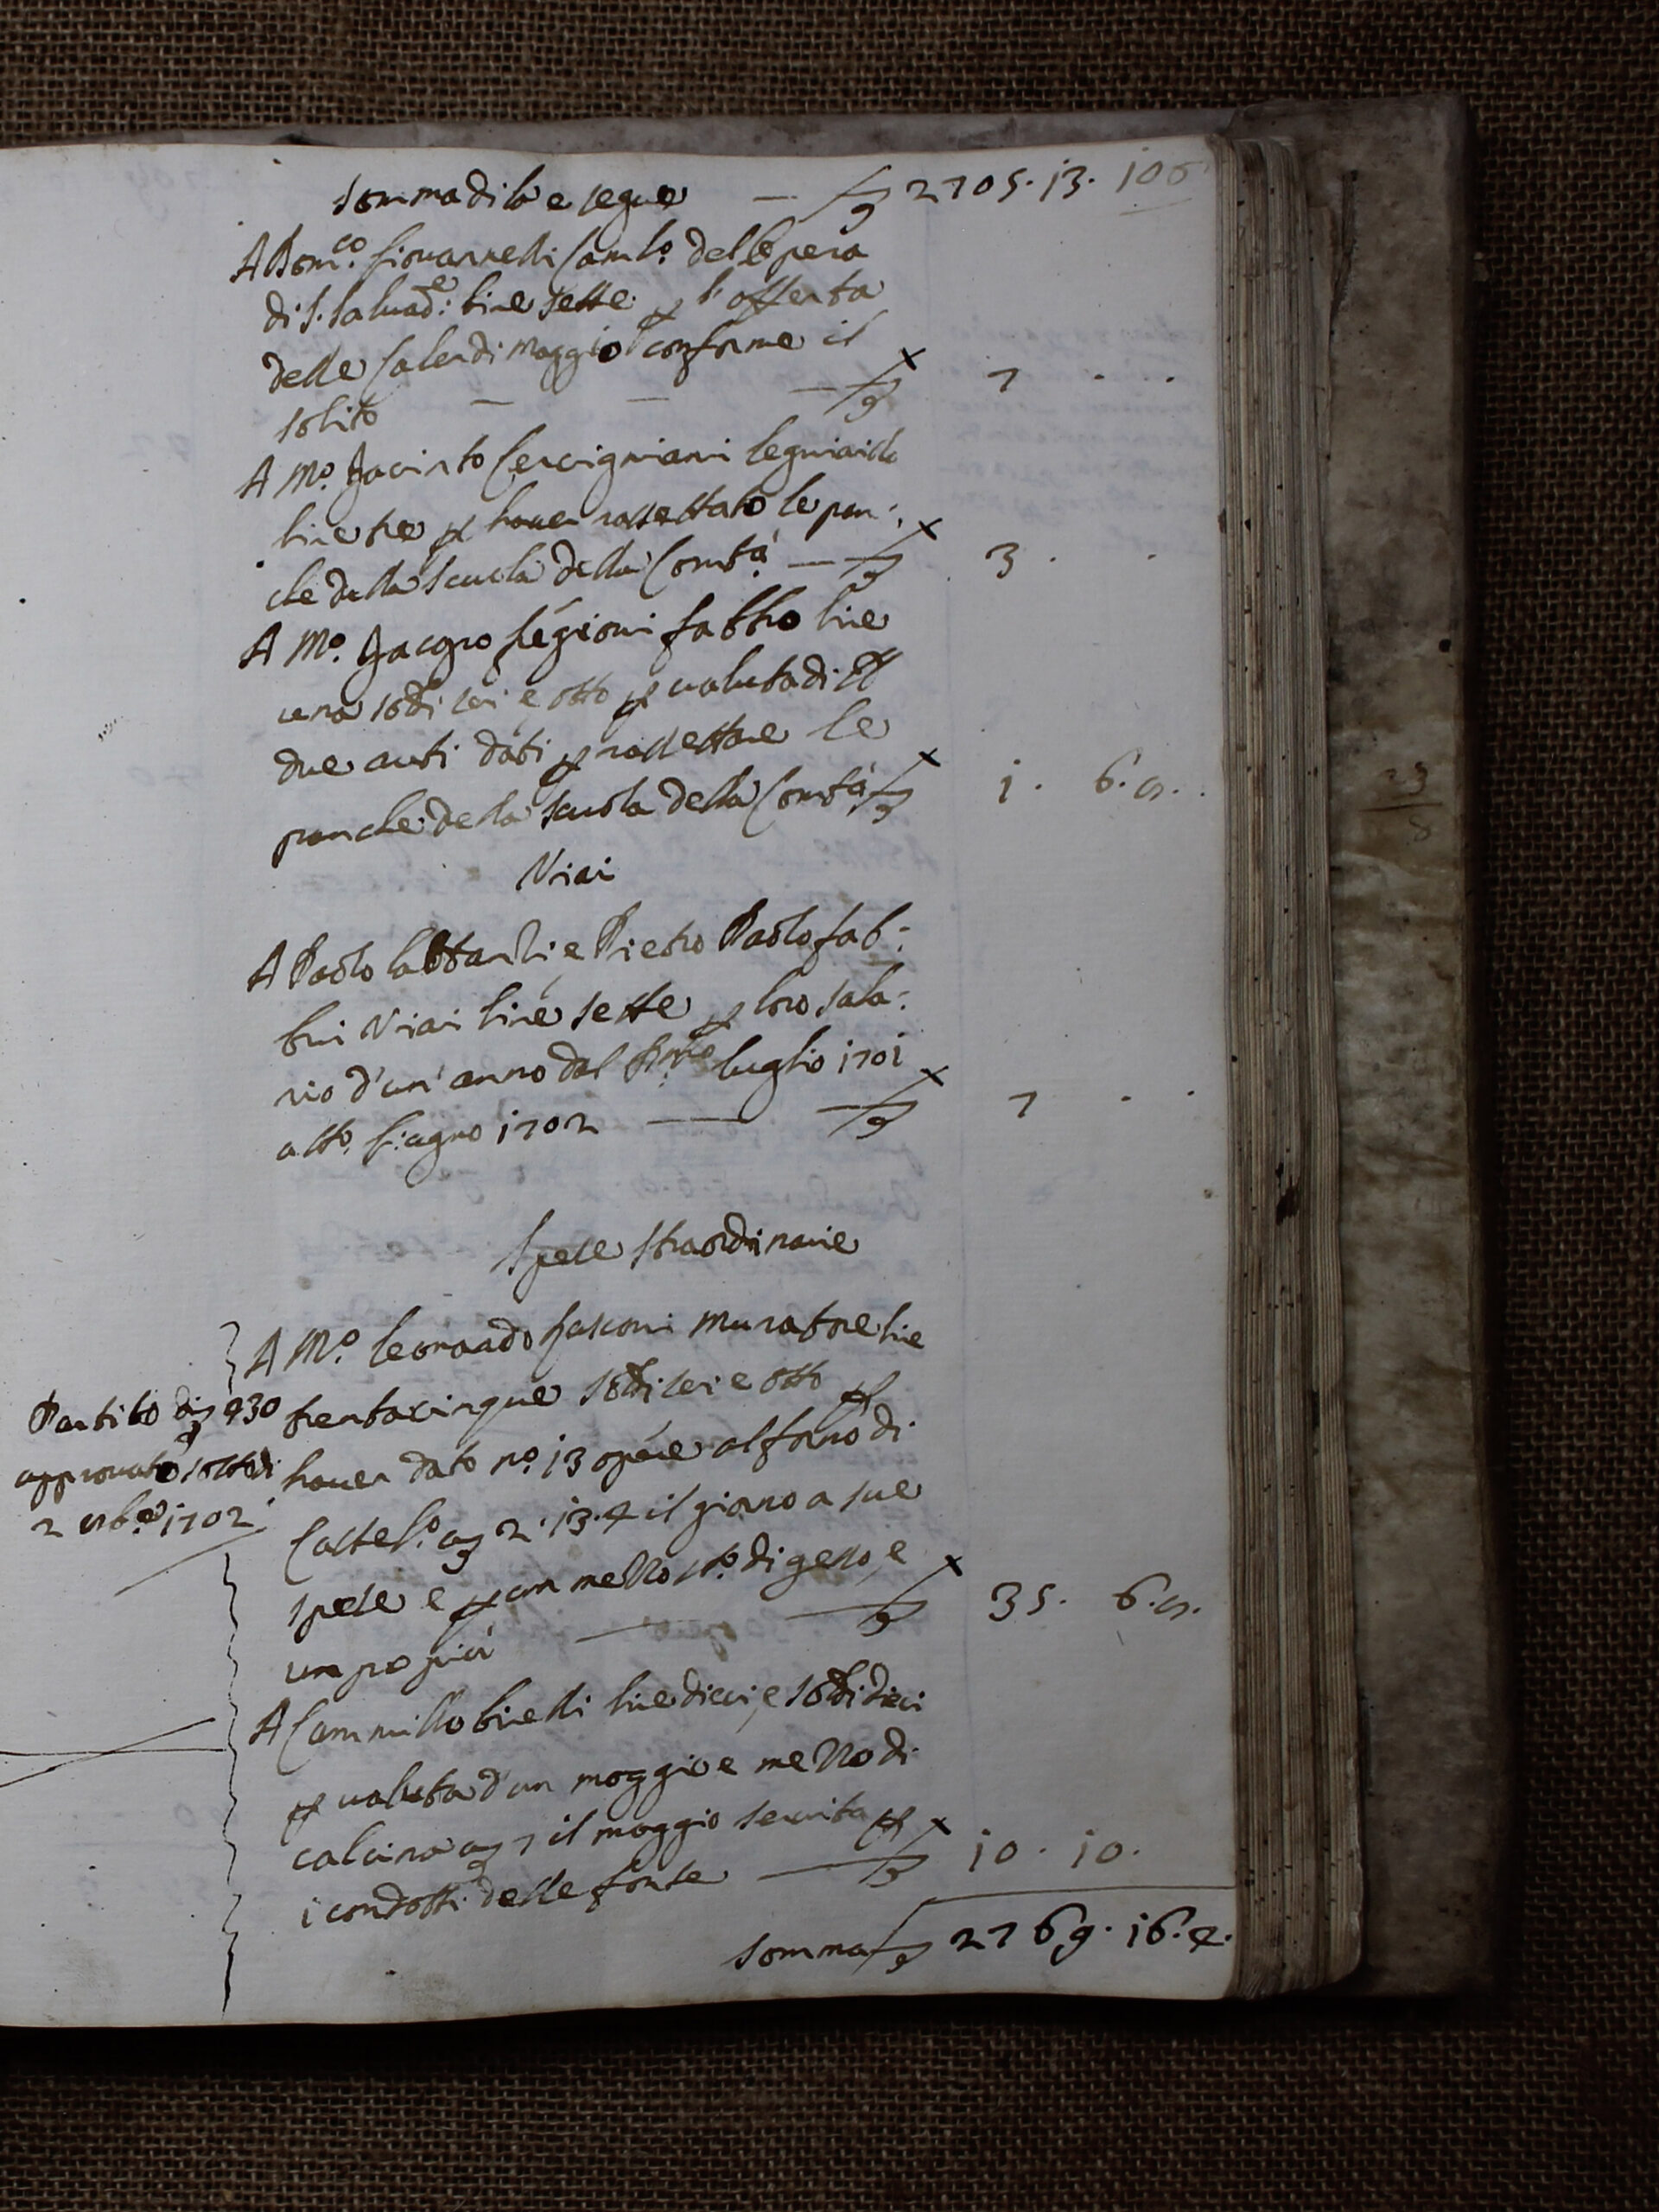 Somma di là e segue — £ 2705. 13. 106
A Dom.co Giovannelli Cam.lo dell'Opera
di S. Saluad.e: lire sette p l'offerta
delle Calendi Maggio conforme il
solito — — — £ 7 . .
A M.o Jacinto Cervigniani legniaiolo
lire tre p hauer rassettato le pan:
che della scuola della Comtà. — £ 3 . .
A M.o Jacopo fabbro lire
una soldi sei e otto p ualuta di
due auti dati p rassettare le
panche della scuola della Comtà £ 1. 6. 8.
Viai
A Paolo Labbardi e Pietro Paolo fab:
bri Viai lire sette p loro sala:
rio d'un'anno dal p.mo luglio 1701
a tto. Giugno 1702 — £ 7 . .
Spese straordinarie
A M.o Leonardo Fasconi Muratore lire
trentacinque soldi sei e otto p
hauer dato n.o 13 opere al forno di
Castel.o a £ 2. 13. 4 il giorno a sue
spese e p un mezzo st.o di gesso, e
un po più — £ 35. 6. 8.
Partito di £ 430
approuato sotto di
2 8b.e 1702
A Cammillo Birelli lire dieci, e soldi dieci
p ualuta d'un moggio e mezzo di
calcina a £ 7 il moggio seruita p
i condotti delle fonte — £ 10. 10.
Somma £ 2769. 16. 4.
23
8